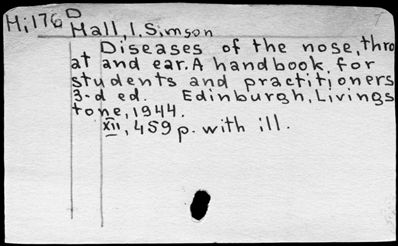 Hi,176 D
Hall, I. Simson
Diseases of the nose, thro
at and ear. A handbook for
students and practitioners
3-d ed. Edinburgh, Livings
tone, 1944.
XII, 459 p. with ill.